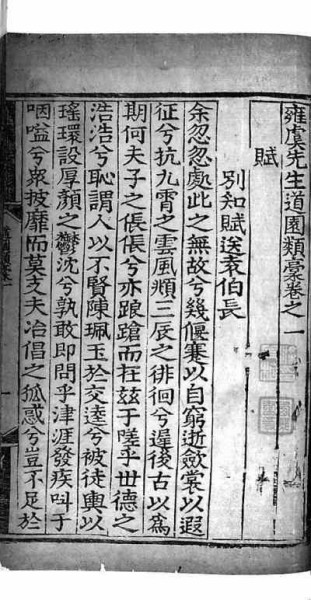 雍虞先生道園類稾卷之一
賦
別知賦送袁伯長
余忽忽處此之無故兮幾偃蹇以自窮逝斂裳以遐
征兮抗九霄之雲風頫三辰之徘徊兮遲後古以為
期何夫子之倀倀兮亦踉蹌而在玆于陸乎世德之
浩浩兮恥謂人以不賢陳珮玉於交逵兮被徒輿以
瑤環設厚顏之鬱沈兮孰敢即問乎津涯發疾呌于
咽嗌兮衆披靡而莫支夫冶倡之狐惑兮豈不足於